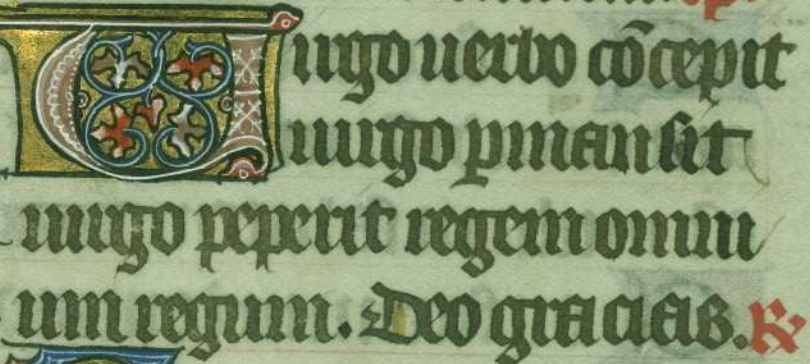 Uirgo uerbo cōcepit
uirgo pmansit
uirgo peperit regem omni
um regum. Deo gracias. ℟